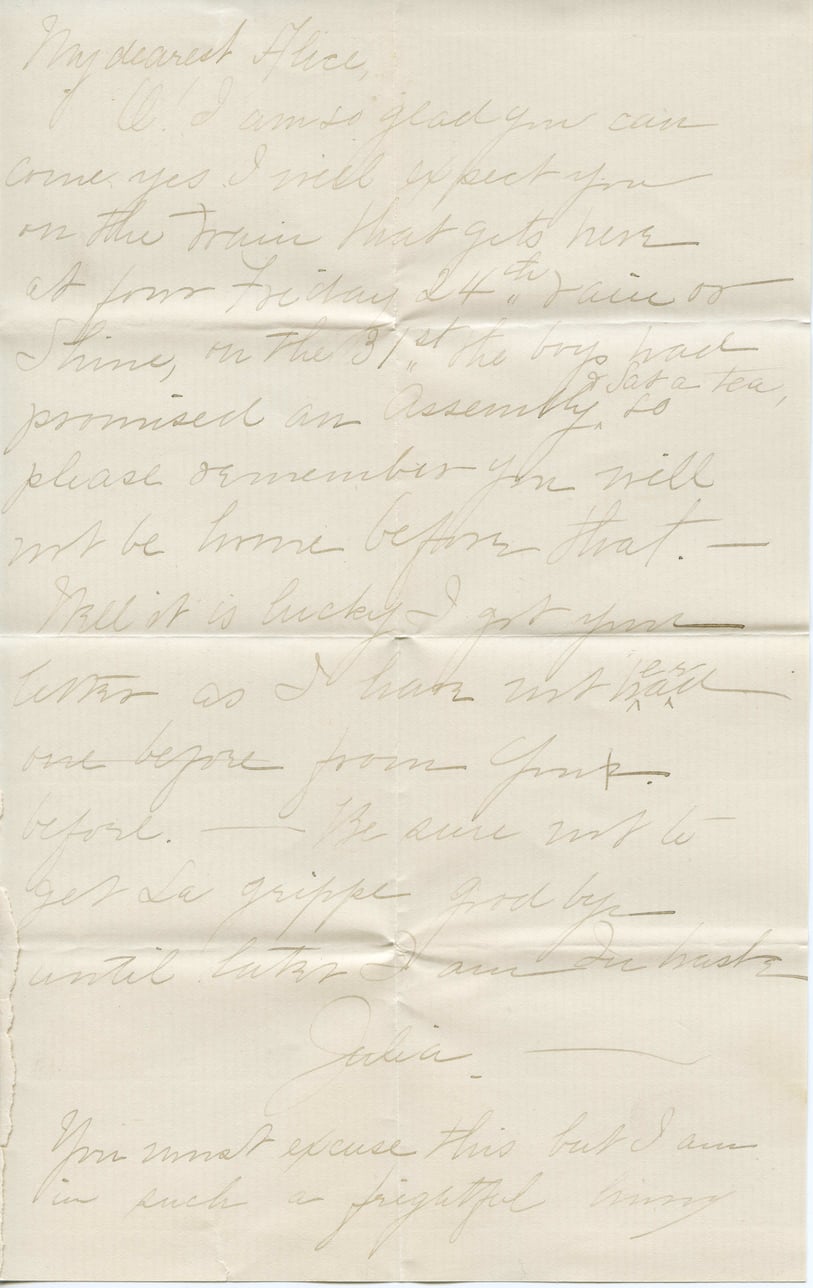 My dearest Alice,
O! I am so glad you can
come yes I will expect you
on the train that gets here
at four Friday 24th rain or
Shine, on the 31st the boys had
promised an Assembly & Sat a tea, so
please remember you will
not be home before that. —
Well it is lucky I got your
letter as I have not herad
one before from you.
before. — Be sure not to
get La grippe good by
until later I am In haste
Julia. —
You must excuse this but I am
in such a frightful hurry